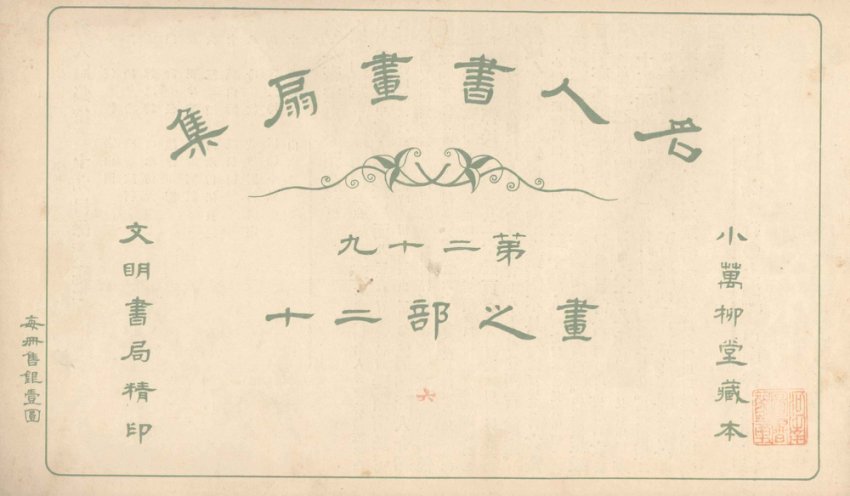 名人書畫扇集
第二十九
畫之部二十
小萬柳堂藏本
文明書局精印
每冊售銀壹圓
六